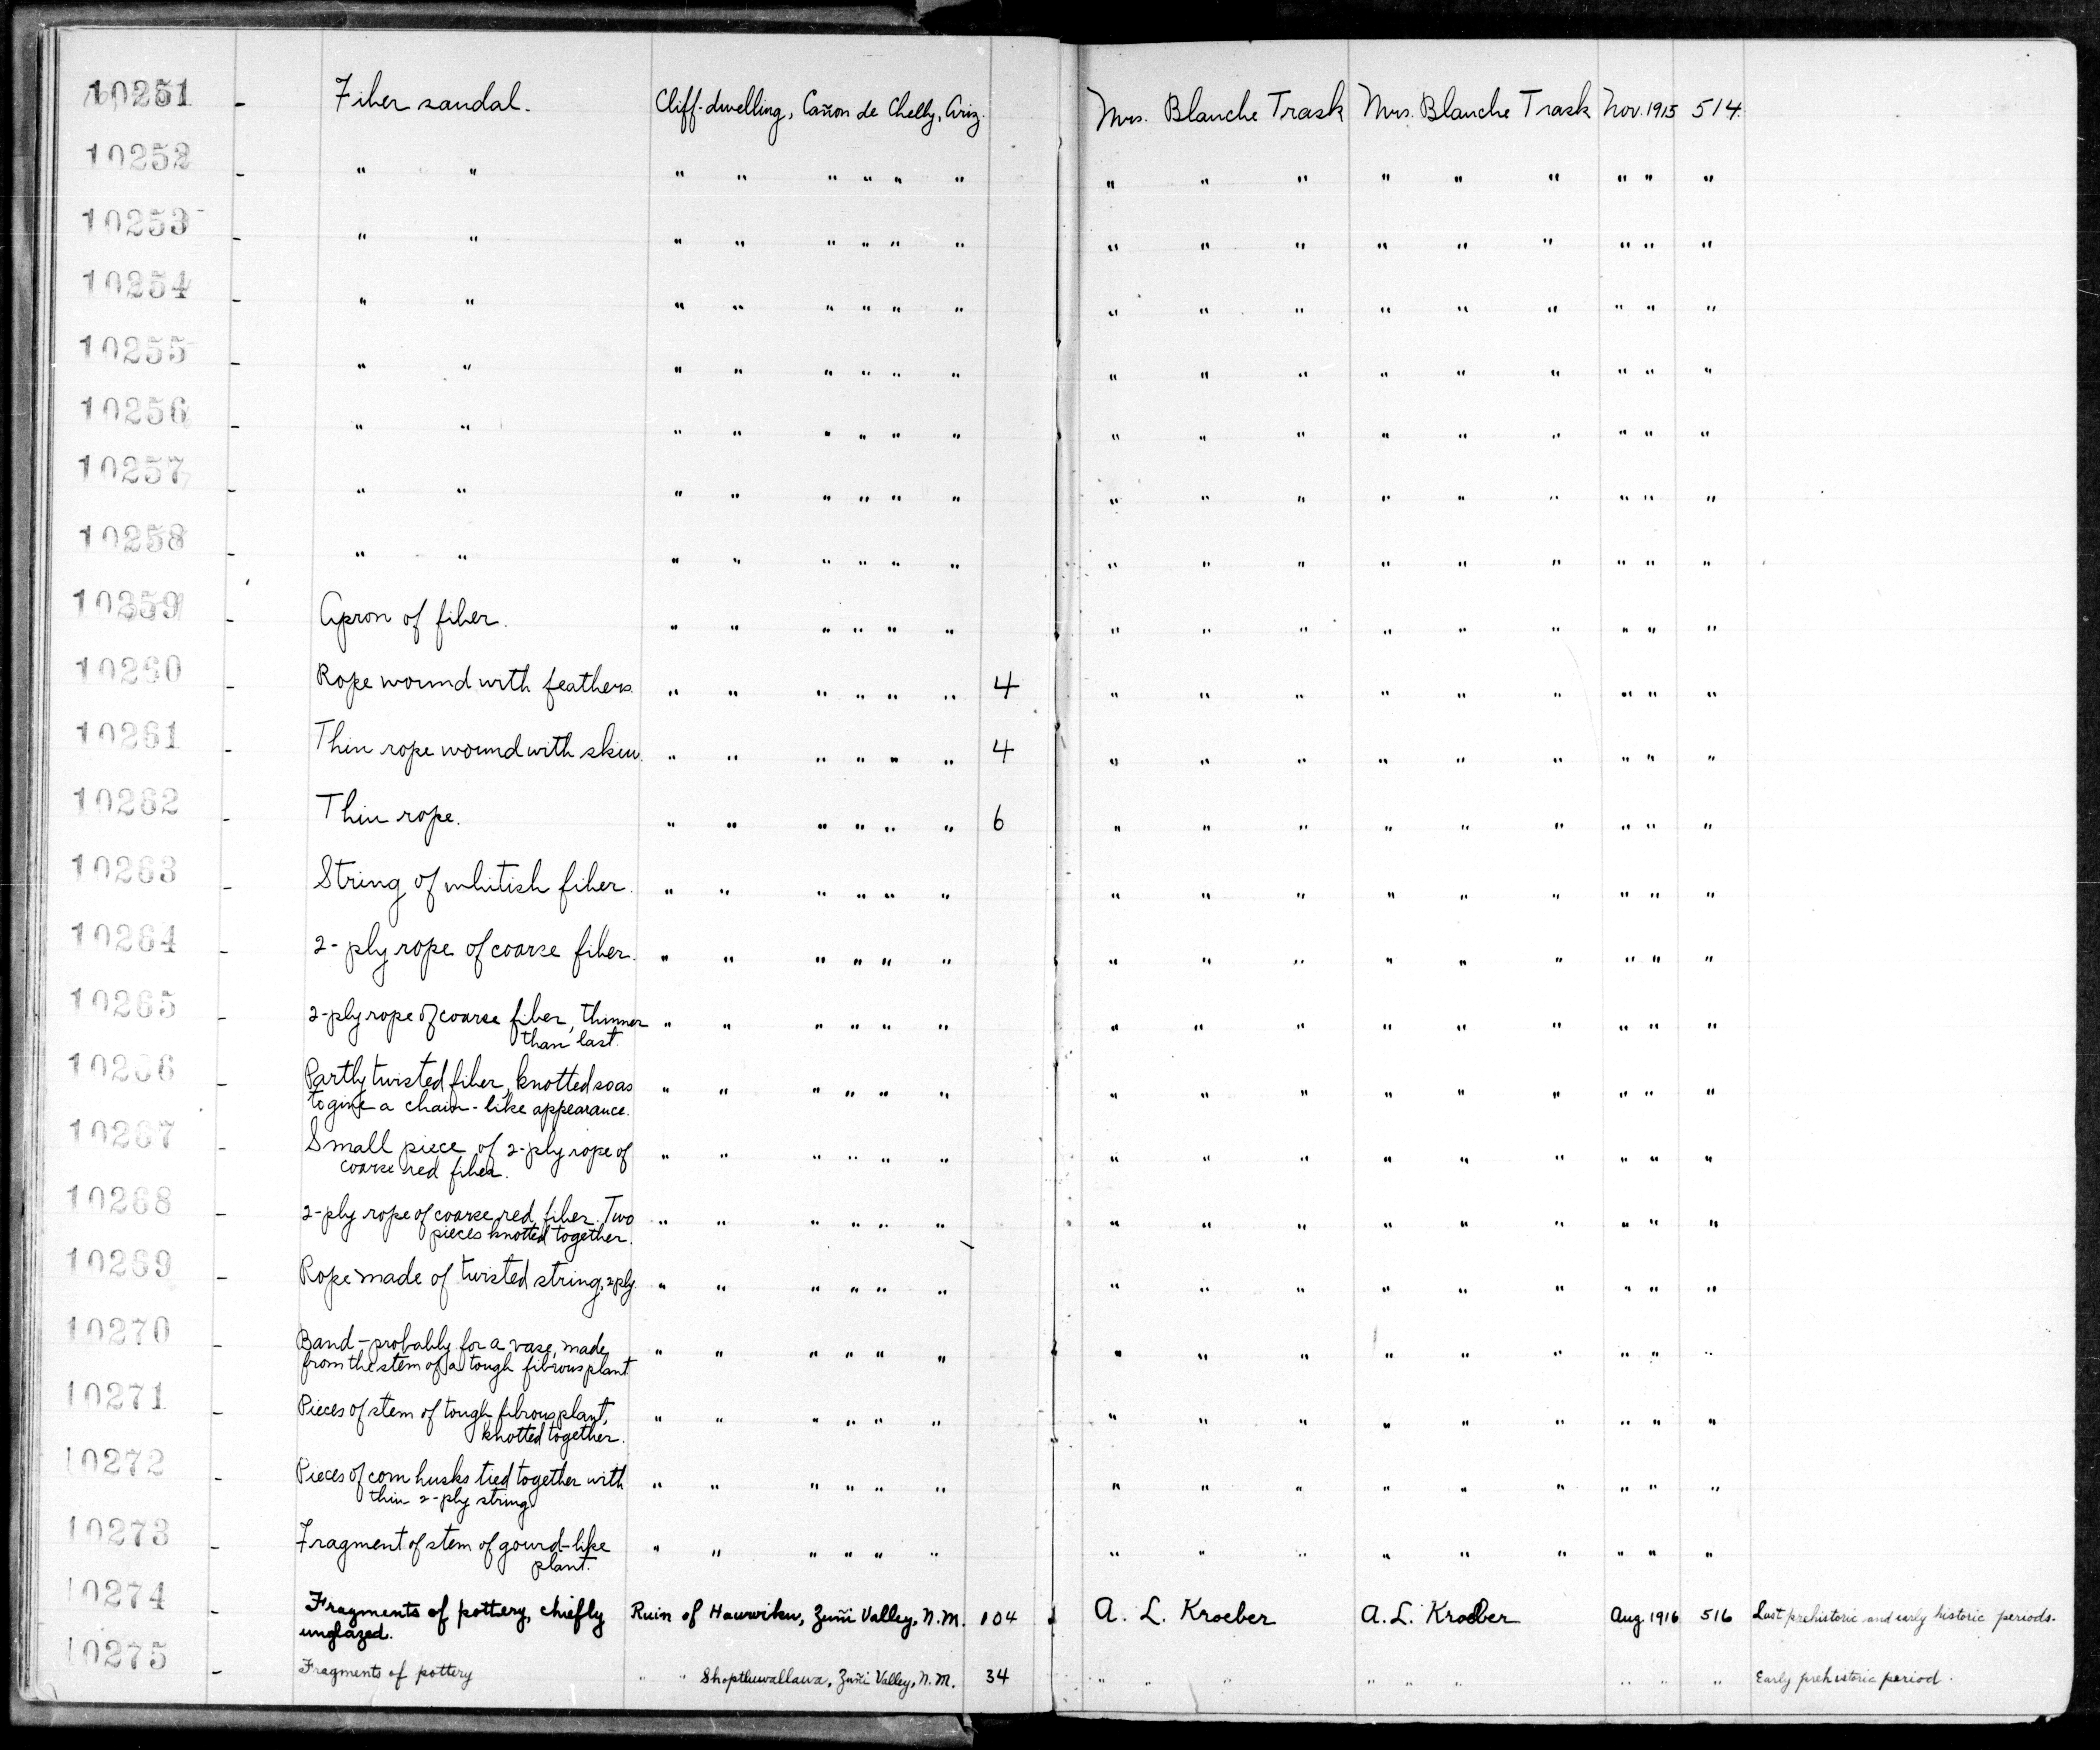 10251 - Fiber sandal. Cliff-dwelling, Cañon de Chelly, Ariz. Mrs. Blanche Trask Mrs. Blanche Trask Nov. 1915 514.
10252 - " " " " " " " " " " " " " " " " "
10253 - " " " " " " " " " " " " " " " " "
10254 - " " " " " " " " " " " " " " " " "
10255 - " " " " " " " " " " " " " " " " "
10256 - " " " " " " " " " " " " " " " " "
10257 - " " " " " " " " " " " " " " " " "
10258 - " " " " " " " " " " " " " " " " "
10259 - Apron of fiber. " " " " " " " " " " " " " " "
10260 - Rope wound with feathers. " " " " " " 4 " " " " " " " " "
10261 - Thin rope wound with skin. " " " " " " 4 " " " " " " " " "
10262 - Thin rope. " " " " " " 6 " " " " " " " " "
10263 - String of whitish fiber. " " " " " " " " " " " " " " "
10264 - 2-ply rope of coarse fiber. " " " " " " " " " " " " " " "
10265 - 2-ply rope of coarse fiber, thinner " " " " " " " " " " " " " " "
than last.
10266 - Partly twisted fiber, knotted so as " " " " " " " " " " " " " " "
to give a chain-like appearance.
10267 - Small piece of 2-ply rope of " " " " " " " " " " " " " " "
coarse red fiber.
10268 - 2-ply rope of coarse red fiber. Two " " " " " " " " " " " " " " "
pieces knotted together.
10269 - Rope made of twisted string, 2 ply. " " " " " " " " " " " " " " "
10270 - Band - probably for a vase, made " " " " " " " " " " " " " " "
from the stem of a tough fibrous plant
10271 - Pieces of stem of tough fibrous plant, " " " " " " " " " " " " " " "
knotted together.
10272 - Pieces of corn husks tied together with " " " " " " " " " " " " " " "
thin 2-ply string
10273 - Fragment of stem of gourd-like " " " " " " " " " " " " " " "
plant.
10274 - Fragments of pottery, chiefly Ruin of Hawwiku, Zuñi Valley, N.M. 104 A. L. Kroeber A. L. Kroeber Aug. 1916 516 Last prehistoric and early historic periods.
unglazed.
10275 - Fragments of pottery " " Shoptluwallawa, Zuñi Valley, N.M. 34 " " " " " " " " " Early prehistoric period.